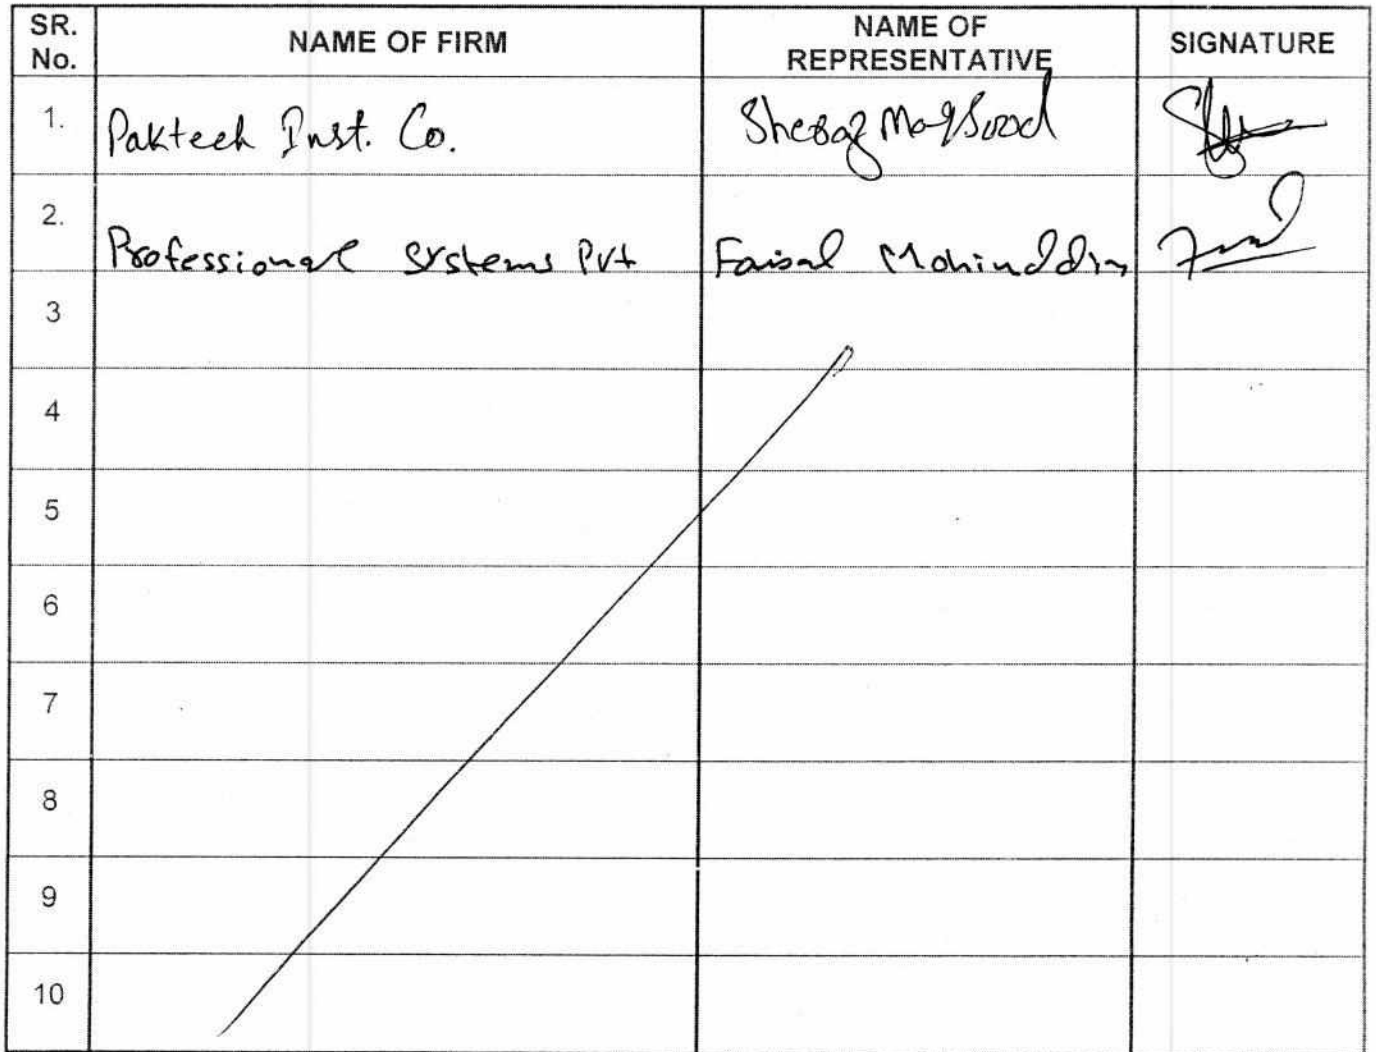 SR. No.
NAME OF FIRM
NAME OF REPRESENTATIVE
SIGNATURE
1. Paktech Inst. Co. Sheraz Maqsood
2. Professional Systems Pvt Faisal Mohiuddin
3
4
5
6
7
8
9
10